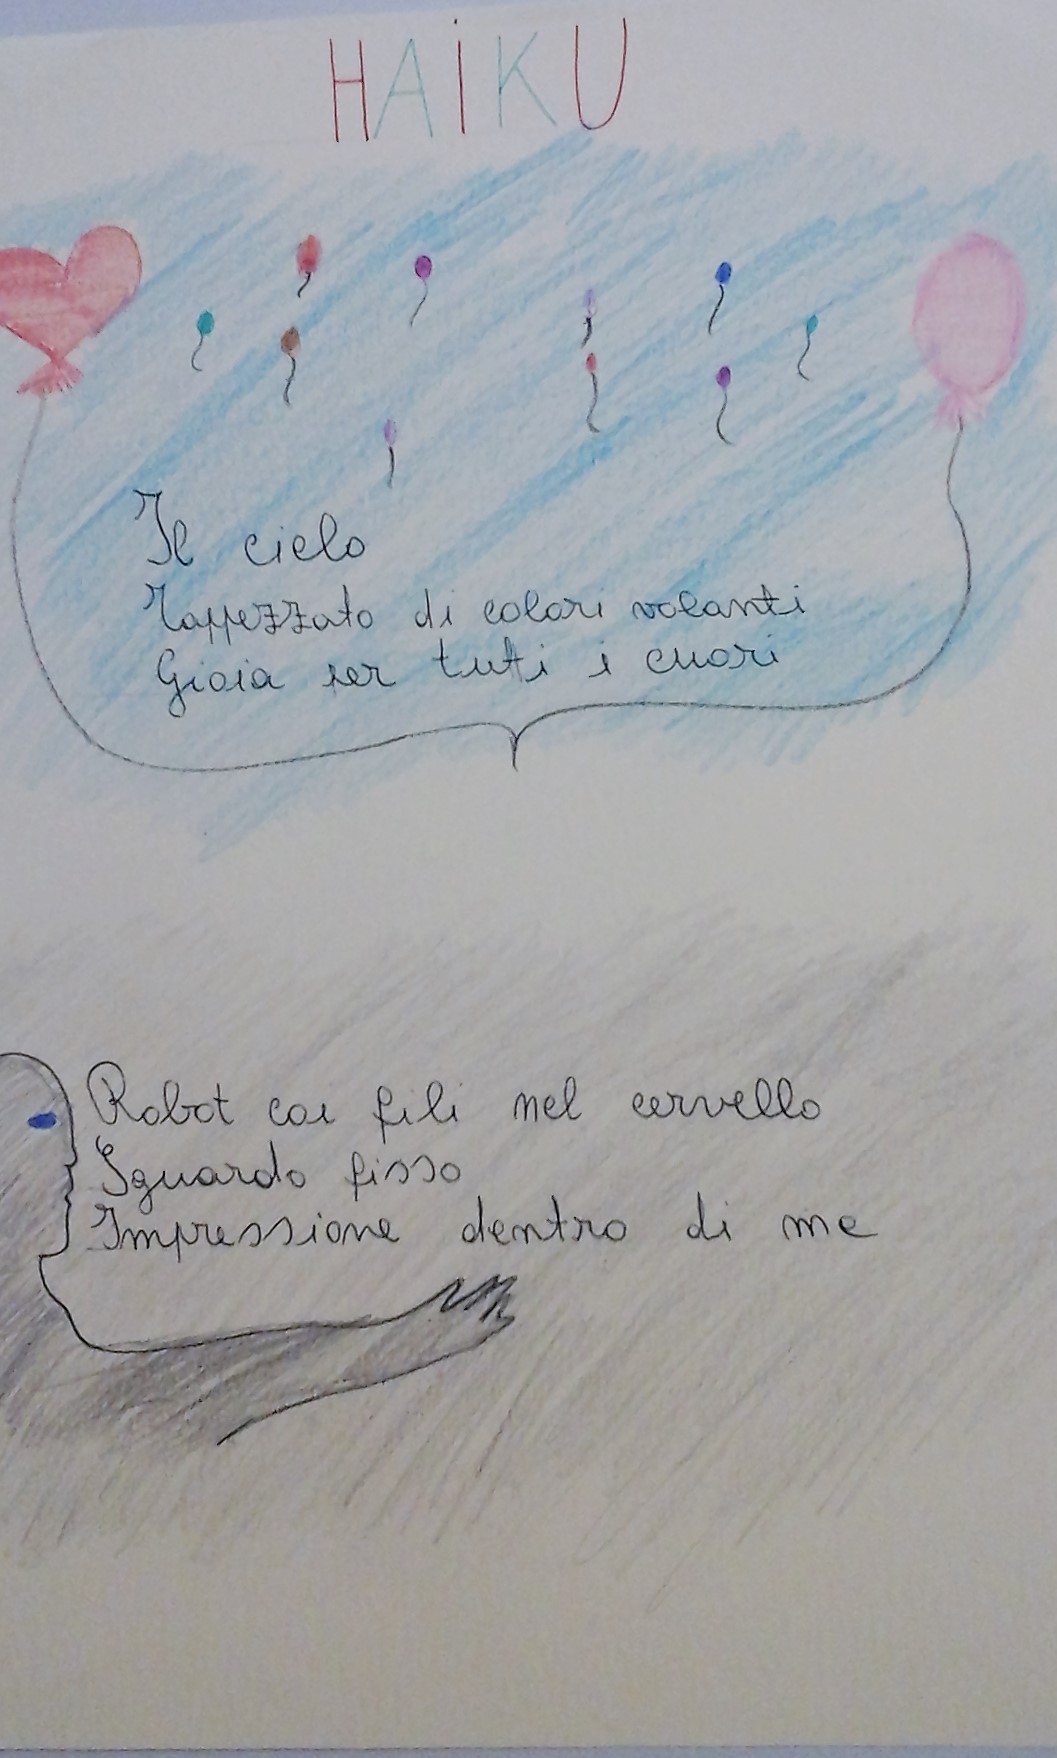 HAiKU
Il cielo
Tappezzato di colori volanti
Gioia per tutti i cuori
Robot coi fili nel cervello
Sguardo fisso
Impressione dentro di me